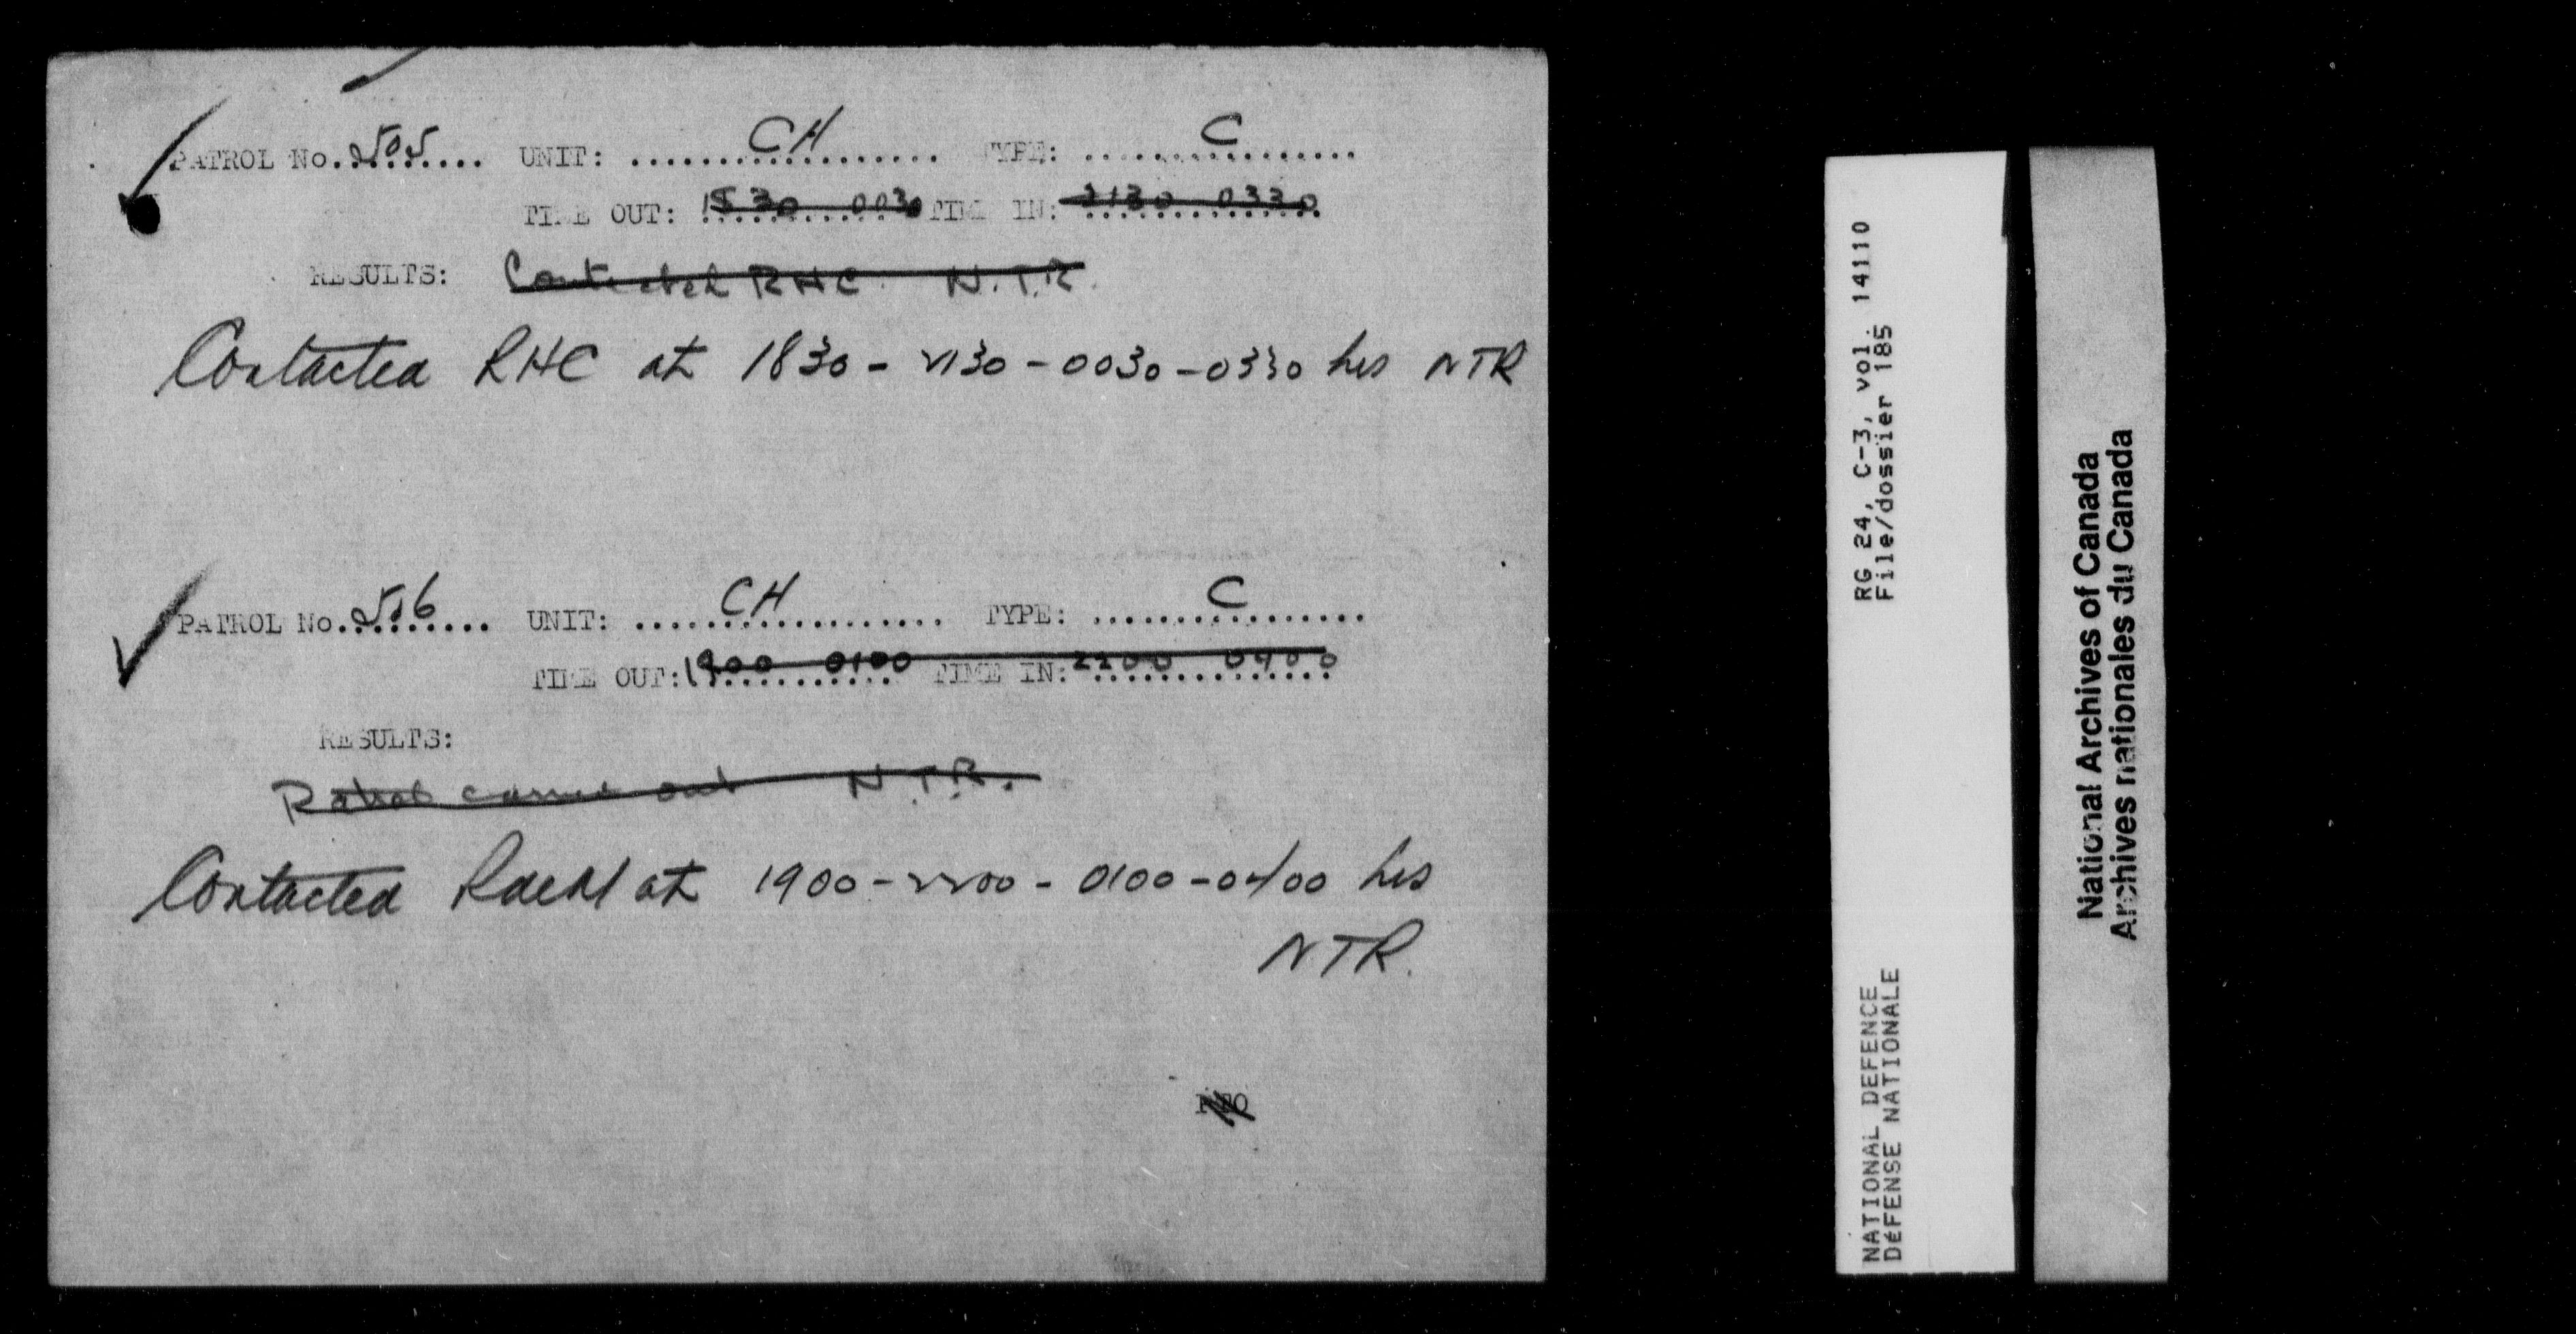 PATROL No. 505 UNIT: CH TYPE: C
TIME OUT: 1830 0030 TIME IN: 2130 0330
RESULTS: Contacted RHC. N.T.R.
Contacted RHC at 1830 - 2130 - 0030 - 0330 hrs NTR
PATROL No. 506 UNIT: CH TYPE: C
TIME OUT: 1900 0100 TIME IN: 2200 0400
RESULTS:
Patrol carried out N.T.R.
Contacted at 1900 - 2200 - 0100 - 0400 hrs
NTR.
PTO
RG 24, C-3, vol. 14110
File/dossier 185
NATIONAL DEFENCE
DéFENSE NATIONALE
National Archives of Canada
Archives nationales du Canada